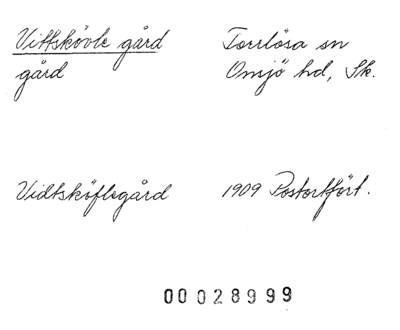 Vittskövle gård Torrlösa sn
gård Onsjö hd, Sk.
Vidtsköflegård 1909 Postortfört.
00028999